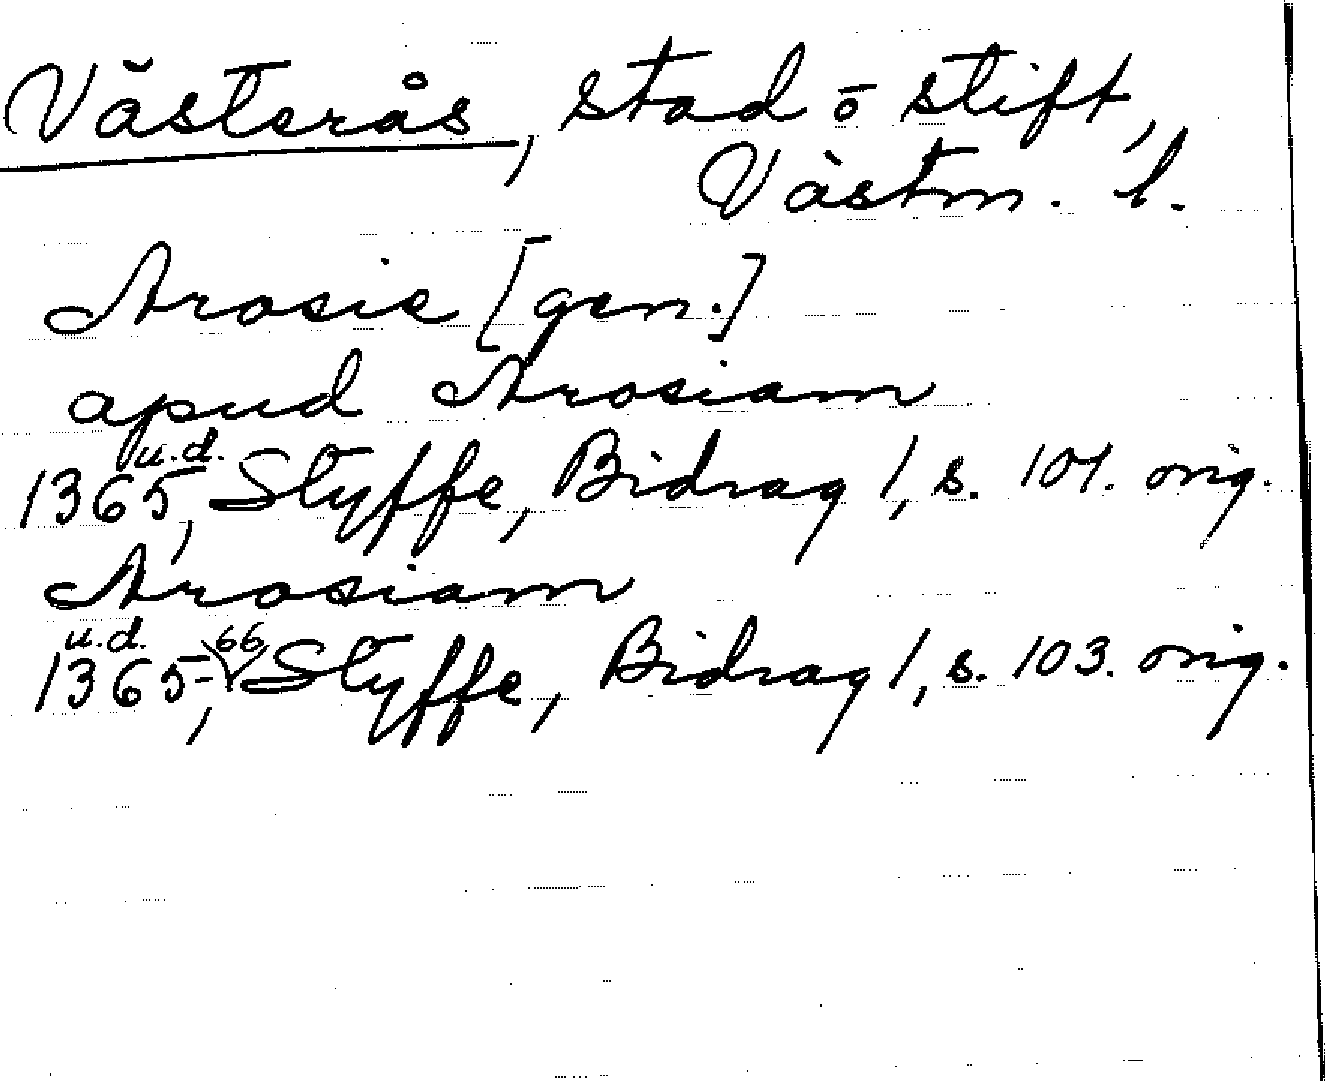 Västerås, stad ō stift,
Västm. l.
Arosie [gen.]
apud Arosiam
u.d.
1365, Styffe, Bidrag 1, s. 101. orig.
Arosiam
u.d. 66
1365-, Styffe, Bidrag 1, s. 103. orig.